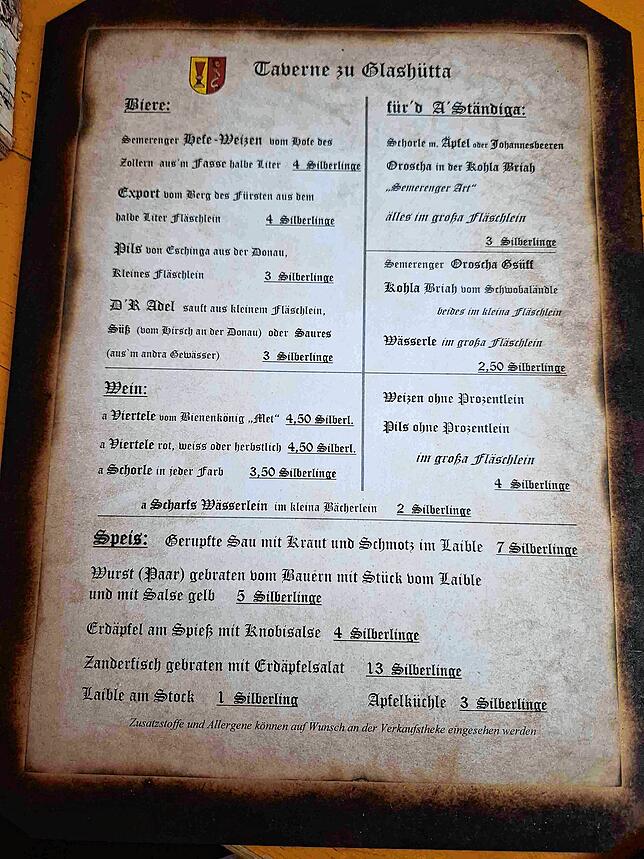 Taverne zu Glashütta
Biere:
Semerenger Hefe-Weizen vom Hofe des
Zollern aus'm Fasse halbe Liter 4 Silberlinge
Export vom Berg des Fürsten aus dem
halbe Liter Fläschlein 4 Silberlinge
Pils von Eschinga aus der Donau,
Kleines Fläschlein 3 Silberlinge
D'R Adel sauft aus kleinem Fläschlein,
Süß (vom Hirsch an der Donau) oder Saures
(aus'm andra Gewässer) 3 Silberlinge
Wein:
a Viertele vom Bienenkönig „Met“ 4,50 Silberl.
a Viertele rot, weiss oder herbstlich 4,50 Silberl.
a Schorle in jeder Farb 3,50 Silberlinge
für'd A'Ständiga:
Schorle m. Äpfel oder Johannesbeeren
Oroscha in der Kohla Briah
„Semerenger Art“
älles im großa Fläschlein
3 Silberlinge
Semerenger Oroscha Gsüff
Kohla Briah vom Schwobaländle
beides im kleina Fläschlein
Wässerle im großa Fläschlein
2,50 Silberlinge
Weizen ohne Prozentlein
Pils ohne Prozentlein
im großa Fläschlein
4 Silberlinge
a Scharfs Wässerlein im kleina Bächerlein 2 Silberlinge
Speis: Gerupfte Sau mit Kraut und Schmotz im Laible 7 Silberlinge
Wurst (Paar) gebraten vom Bauern mit Stück vom Laible
und mit Salse gelb 5 Silberlinge
Erdäpfel am Spieß mit Knobisalse 4 Silberlinge
Zanderfisch gebraten mit Erdäpfelsalat 13 Silberlinge
Laible am Stock 1 Silberling Apfelküchle 3 Silberlinge
Zusatzstoffe und Allergene können auf Wunsch an der Verkaufstheke eingesehen werden